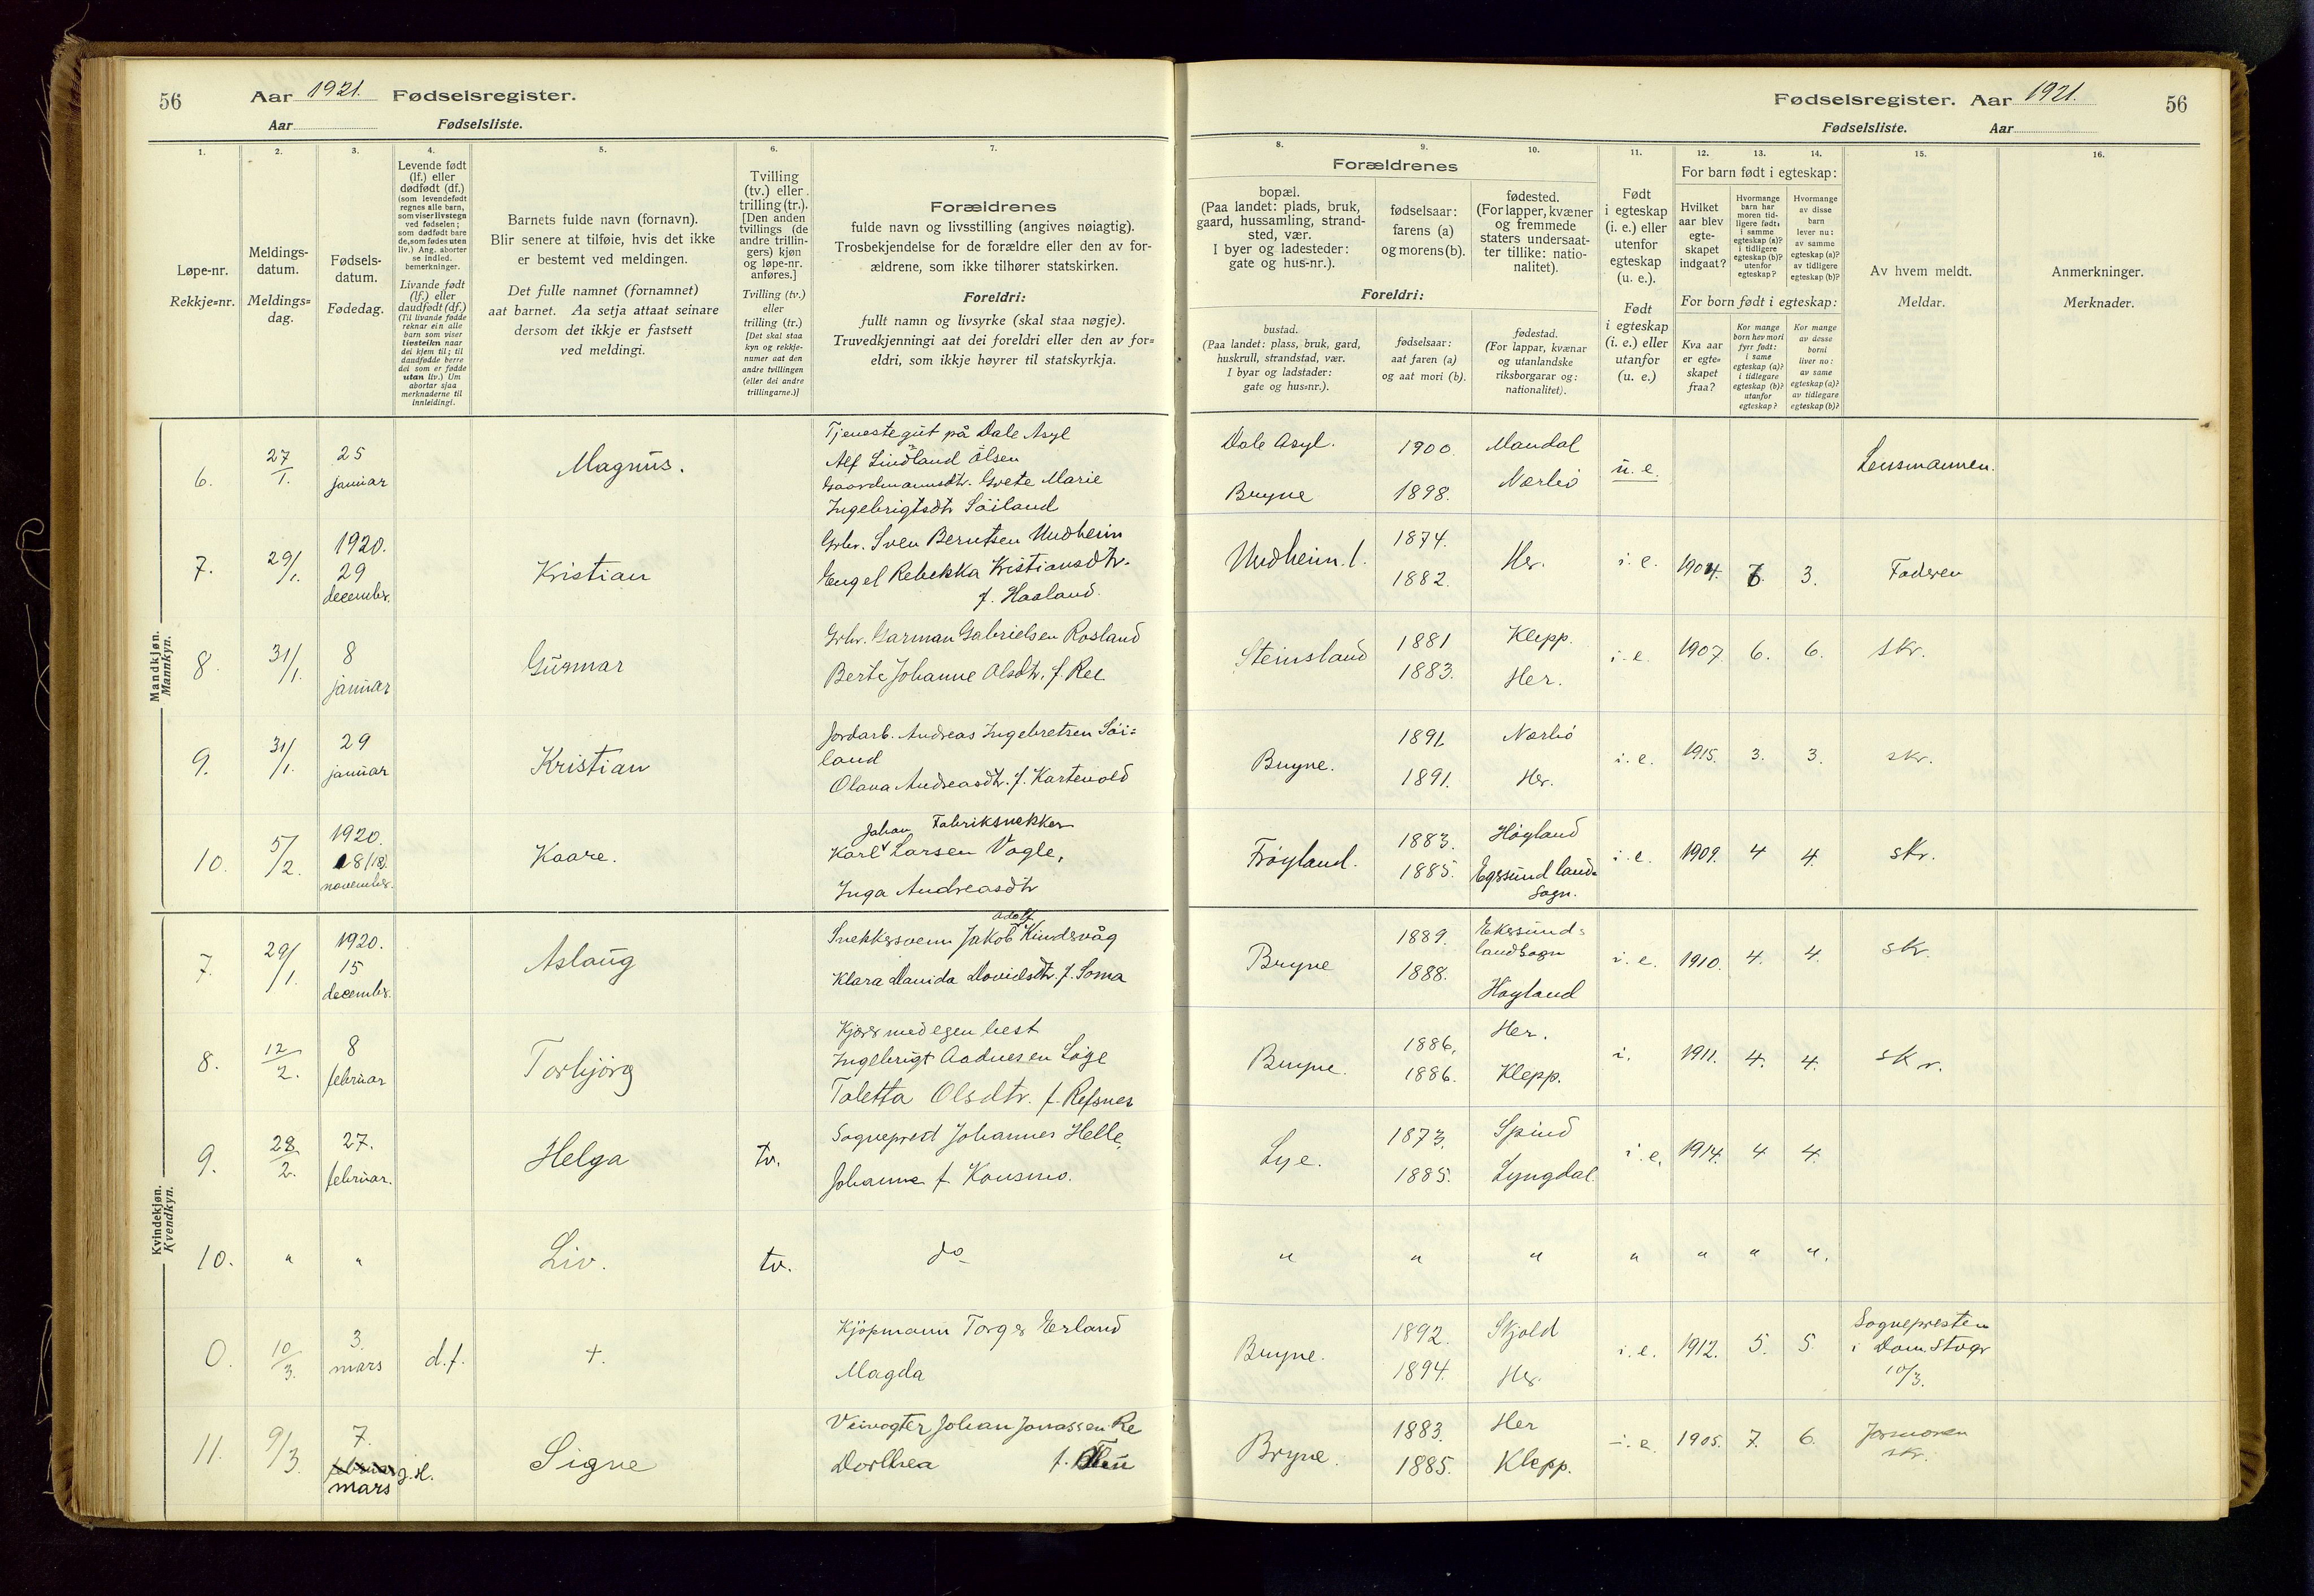 56
Aar 1921. Fødselsregister.
Aar Fødselsliste.
Fødselsregister. Aar 1921.
56
Fødselsliste. Aar
1.
Løpe-nr.
Rekkje=nr.
2.
Meldings-
datum.
Meldings=
dag.
3.
Fødsels-
datum.
Fødedag.
4.
Levende født
(lf.) eller
dødfødt (df.)
(som levendefødt
regnes alle barn,
som viser livstegn
ved fødselen;
som dødfødt bare
de, som fødes uten
liv.) Ang. aborter
se indled.
bemerkninger.
Livande født
(lf.) eller
daudfødt (df.)
(Til livande fødde
reknar ein alle
barn som viser
livsteikn naar
dei kjem til; til
daudfødde berre
dei som er fødde
utan liv.) Um
abortar sjaa
merknaderne til
innleidingi.
5.
Barnets fulde navn (fornavn).
Blir senere at tilføie, hvis det ikke
er bestemt ved meldingen.
Det fulle namnet (fornamnet)
aat barnet. Aa setja attaat seinare
dersom det ikkje er fastsett
ved meldingi.
6.
Tvilling
(tv.) eller
trilling (tr.).
[Den anden
tvillings (de
andre trillin-
gers) kjøn
og løpe-nr.
anføres.]
Tvilling (tv.)
eller
trilling (tr.)
[Det skal staa
kyn og rekkje-
numer aat den
andre tvillingen
(eller dei andre
trillingarne.)]
7.
Forældrenes
fulde navn og livsstilling (angives nøiagtig).
Trosbekjendelse for de forældre eller den av for-
ældrene, som ikke tilhører statskirken.
Foreldri:
fullt namn og livsyrke (skal staa nøgje).
Truvedkjenningi aat dei foreldri eller den av for=
eldri, som ikkje høyrer til statskyrkja.
8.
9.
10.
Forældrenes
bopæl.
(Paa landet: plads, bruk,
gaard, hussamling, strand-
sted, vær.
I byer og ladesteder:
gate og hus-nr.).
fødselsaar:
farens (a)
og morens (b).
fødested.
(For lapper, kvæner
og fremmede
staters undersaat-
ter tillike: natio-
nalitet).
Foreldri:
bustad.
(Paa landet: plass, bruk, gard,
huskrull, strandstad, vær.
I byar og ladstader:
gate og hus=nr.).
fødselsaar:
aat faren (a)
og aat mori (b).
fødestad.
(For lappar, kvænar
og utanlandske
riksborgarar og:
nationalitet).
11.
Født
i egteskap
(i. e.) eller
utenfor
egteskap
(u. e.).
Født
i egteskap
(i. e.) eller
utanfor
(u. e.)
12.
13.
14.
For barn født i egteskap:
Hvilket
aar blev
egte-
skapet
indgaat?
Hvormange
barn har
moren tid-
ligere født:
i samme
egteskap (a)?
i tidligere
egteskap (b)?
utenfor
egteskap?
Hvormange
av disse
barn
lever nu:
av samme
egteskap (a)?
av tidligere
egteskap (b)?
For born født i egteskap:
Kva aar
er egte-
skapet
fraa?
Kor mange
born hev mori
fyrr født:
i same
egteskap (a)?
i tidlegare
egteskap (b)?
utanfor
egteskap?
Kor mange
av desse
borni
liver no:
av same
egteskap (a)?
av tidlegare
egteskap (b)?
15.
Av hvem meldt.
Meldar.
16.
Anmerkninger.
Merknader.
Mandkjøn.
Mannkyn.
6. 27/1. 25 januar Magnus.
Tjenestegut på Dale Asyl
Alf Lindland Olsen
Gaardmannsdtr. Grete Marie
Ingebrigtsdtr Söiland
Dale Asyl. 1900. Mandal
Bryne 1898. Nærbö
u. e. Lensmannen.
7. 29/1. 1920. 29 december. Kristian
Grbr. Sven Berntsen Undheim
Engel Rebekka Kristiansdtr.
f. Haaland.
Undheim. 1874. 1882. Her. i. e. 1904. 3. Faderen
8. 31/1. 8 januar Gunnar
Grbr. Garman Gabrielsen Rosland
Berte Johanne Olsdtr. f. Ree
Steinsland 1881 Klepp.
1883. Her.
i. e. 1907. 6. 6. skr.
9. 31/1. 29 januar Kristian
Jordarb. Andreas Ingebretsen Söi=
land
Olava Andreasdtr. f. Kartevold
Bryne. 1891. Nærbö
1891. Her.
i. e. 1915. 3. 3. skr.
10. 5/2. 1920. 18 (18). november. Kaare.
Johan Fabriksnekker
Karl Larsen Vagle,
Inga Andreasdtr
Fröyland. 1883. Höyland
1885. Egersund land=
sogn.
i. e. 1909. 4 4. skr.
Kvindekjøn.
Kvendkyn.
7. 29/1. 1920. 15 december. Aslaug
Adolf
Snekkersvenn Jakob Kindervåg
Klara Davida Davidsdtr. f. Soma
Bryne 1889. Ekersund=
landsogn
1888. Höyland
i. e. 1910. 4. 4. skr.
8. 12/2. 8 februar Torbjörg
Kjörer med egen hest
Ingebrigt Aadnesen Löge
Taletta Olsdtr. f. Refsnes
Bryne. 1886. Her.
1886. Klepp.
i. 1911. 4. 4. skr.
9. 28/2. 27. februar. Helga tv.
Sogneprest Johannes Helle,
Johanne f. Konsmo.
Lye. 1873. Spind
1885. Lyngdal.
i. e. 1914. 4 4.
10. " " Liv. tv. do
" " " " " " ".
0. 10/3. 3. mars d.f. +.
Kjöpmann Torger Erland
Magda
Bryne. 1892. Skjold
1894. Her.
i. e. 1912. 5. 5.
Sognepresten
i Dom
10/3.
11. 9/3. 7. februar g.H. mars Signe
Veivogter Johan Jonassen Re
Dorthea f.
Bryne. 1883. Her
1885. Klepp.
i. e. 1905. 7. 6. Jormoren
skr.